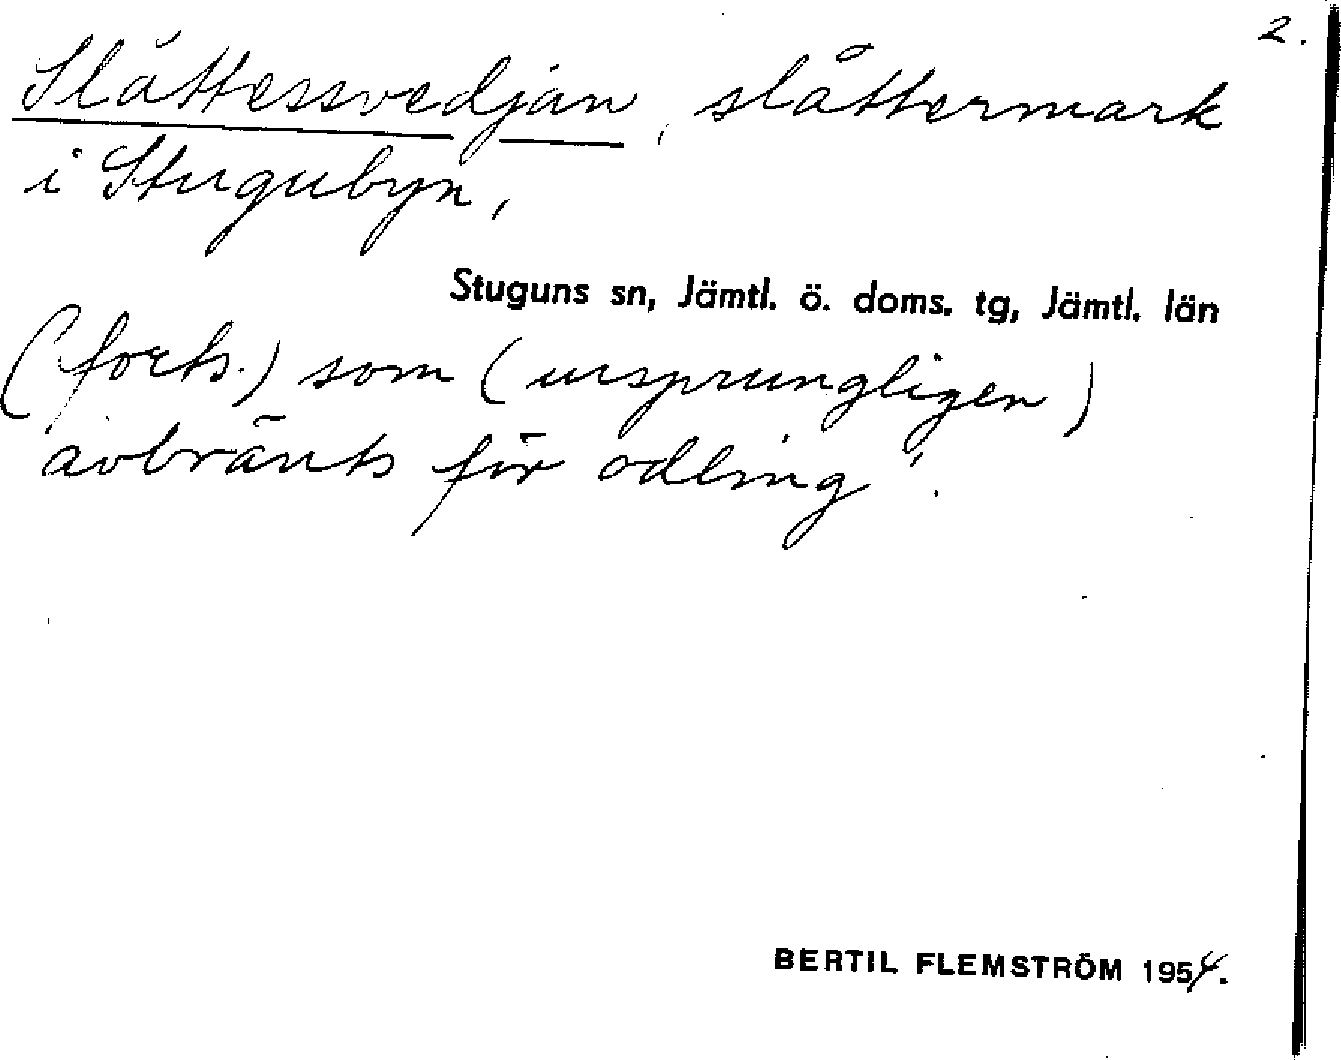 2.
Slåttessvedjan, slåttermark
i Stugubyn,
Stuguns sn, Jämtl. ö. doms. tg, Jämtl. län
(forts.) som (ursprungligen)
avbränts för odling".
BERTIL FLEMSTRÖM 1954.